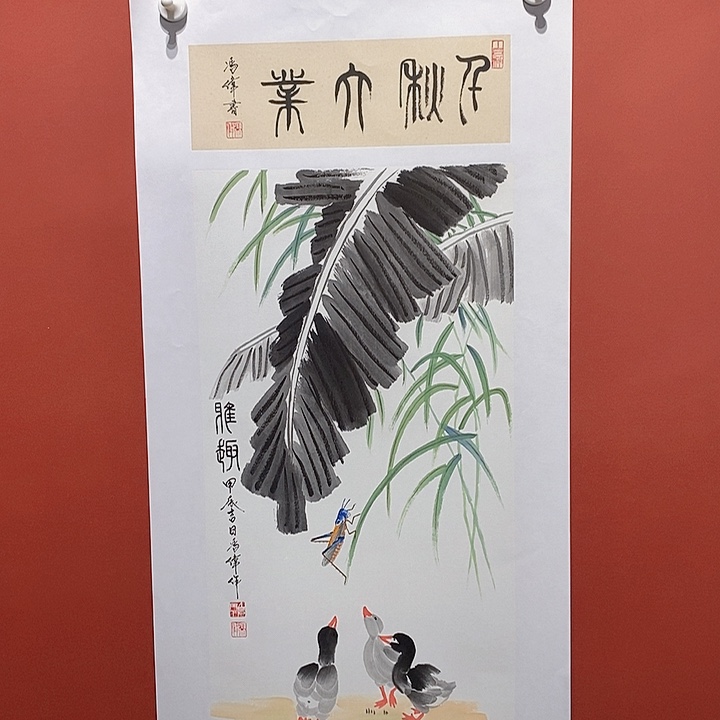 千秋大業
馮偉書
雅趣
甲辰吉日馮偉作